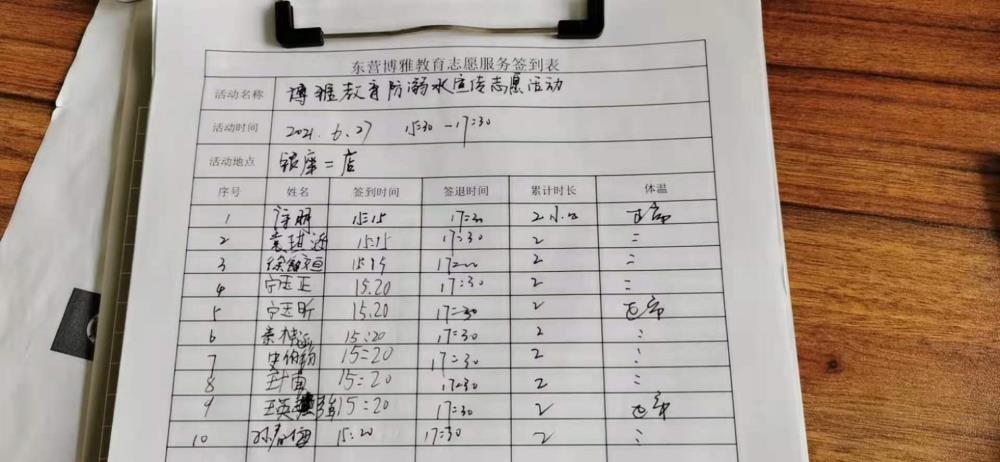 东营博雅教育志愿服务签到表
活动名称 博雅教育防溺水宣传志愿活动
活动时间 2021.6.27 15:30-17:30
活动地点 银座二店
序号 姓名 签到时间 签退时间 累计时长 体温
1 15:15 17:30 2小 正常
2 15:15 17:30 2 〃
3 15:15 2 〃
4 宁玉正 15.20 17:30 2 〃
5 宁玉昕 15.20 17:30 2 正常
6 15:20 17:30 2 〃
7 15:20 17:30 2 〃
8 15:20 17:30 2 〃
9 王英 15:20 17:30 2 正常
10 孙 15:20 17:30 2 〃